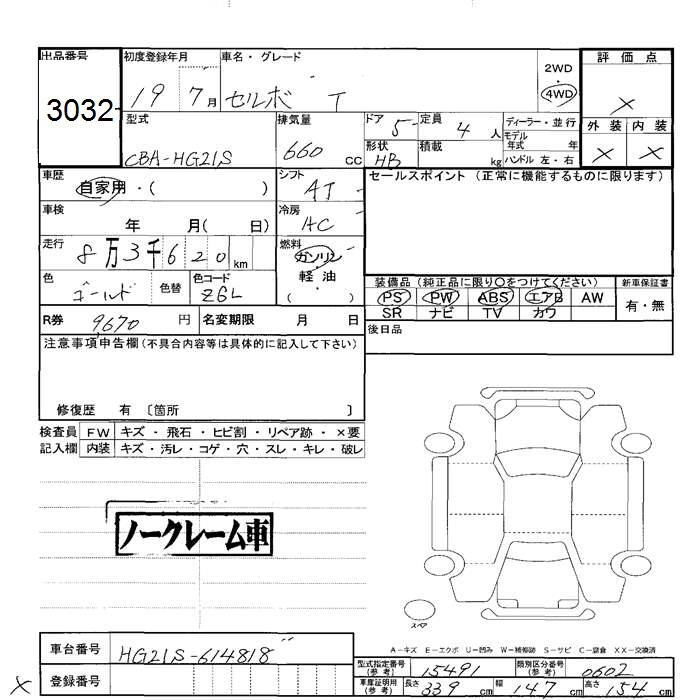 出品番号 初度登録年月 車名・グレード 2WD ・ 4WD 評価点
3032 19 7月 セルボ T ×
型式 排気量 ドア 5 定員 4 人 ディーラー・並行 外装 内装
CBA-HG21S 660 CC 形状 HB 積載 kg モデル年式 年 × ×
ハンドル 左・右
車歴 自家用・( ) シフト AT セールスポイント(正常に機能するものに限ります)
車検 年 月( 日) 冷房 AC
走行 8万3千620km 燃料 ガソリン・軽油 ( )
色 ゴールド 色替 色コード Z6L
装備品(純正品に限り〇をつけてください) 新車保証書
PS PW ABS エアB AW 有・無
SR ナビ TV カワ
R券 9670 円 名変期限 月 日 後日品
注意事項申告欄(不具合内容等は具体的に記入して下さい)
修復歴 有 〔箇所 〕
検査員 FW キズ・飛石・ヒビ割・リペア跡・×要
記入欄 内装 キズ・汚レ・コゲ・穴・スレ・キレ・破レ
ノークレーム車
スペア
A-キズ E-エクボ U-凹み W-補修跡 S-サビ C-腐食 XX-交換済
車台番号 HG21S-614818
型式指定番号(参考) 15491 類別区分番号(参考) 0602
× 登録番号
車庫証明用(参考) 長さ 339 cm 幅 147 cm 高さ 154 cm